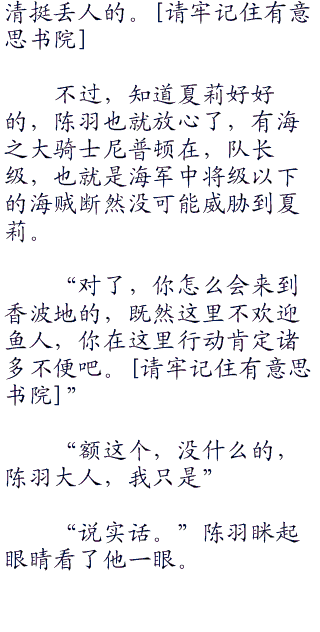 清挺丢人的。[请牢记住有意
思书院]
不过，知道夏莉好好
的，陈羽也就放心了，有海
之大骑士尼普顿在，队长
级，也就是海军中将级以下
的海贼断然没可能威胁到夏
莉。
“对了，你怎么会来到
香波地的，既然这里不欢迎
鱼人，你在这里行动肯定诸
多不便吧。[请牢记住有意思
书院]”
“额这个，没什么的，
陈羽大人，我只是”
“说实话。”陈羽眯起
眼睛看了他一眼。